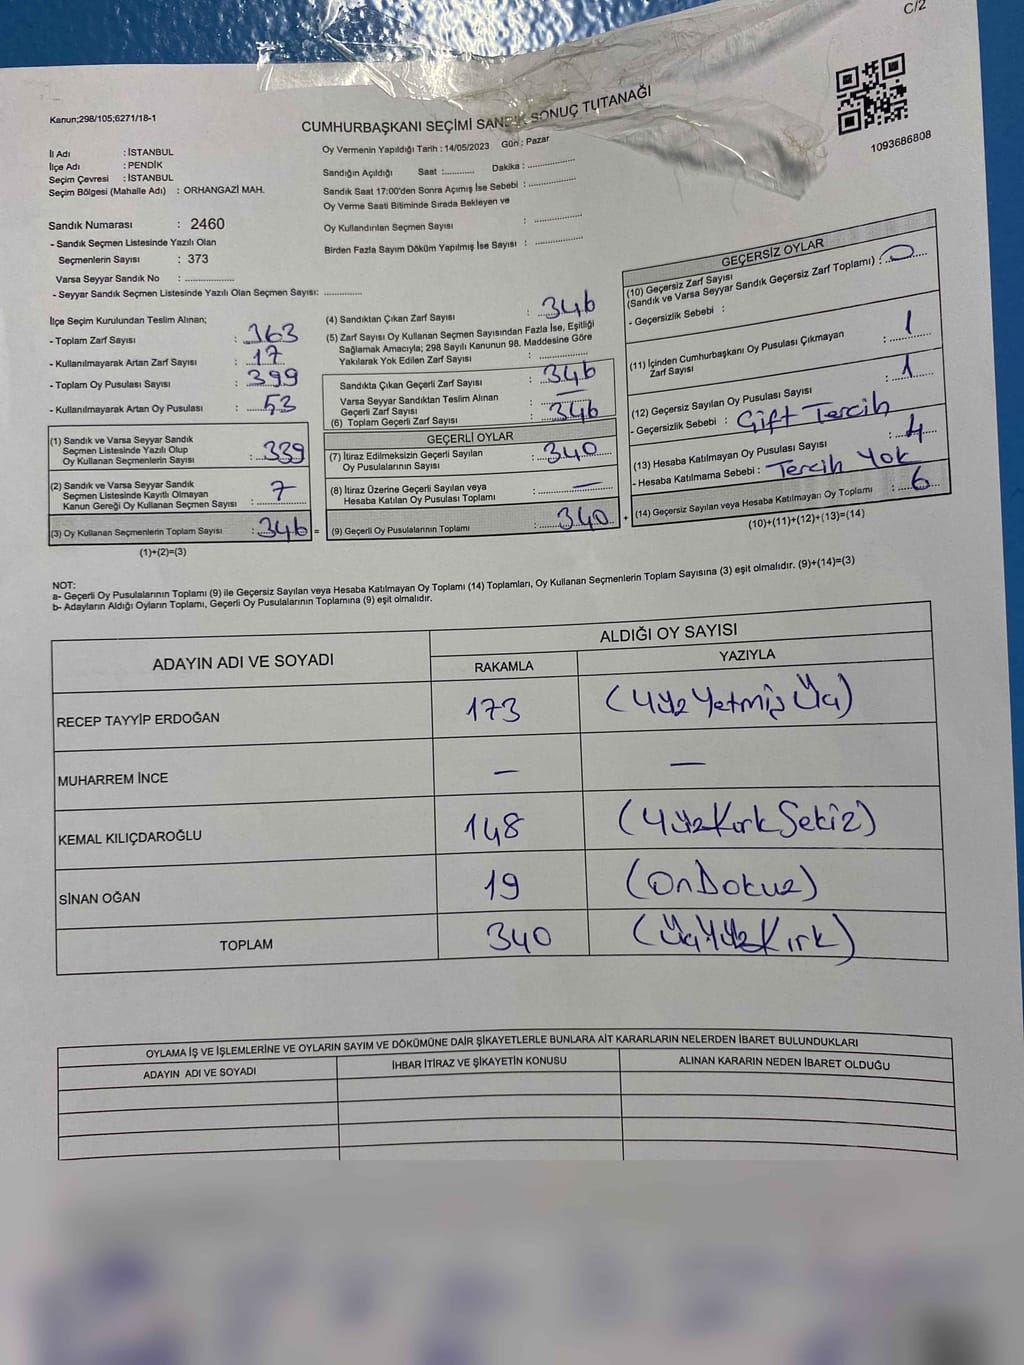 C/2
Kanun;298/105;6271/18-1
CUMHURBAŞKANI SEÇİMİ SANDIK SONUÇ TUTANAĞI
1093686808
İl Adı : İSTANBUL
İlçe Adı : PENDİK
Seçim Çevresi : İSTANBUL
Seçim Bölgesi (Mahalle Adı) : ORHANGAZİ MAH.
Sandık Numarası : 2460
- Sandık Seçmen Listesinde Yazılı Olan
Seçmenlerin Sayısı : 373
Varsa Seyyar Sandık No : ................
- Seyyar Sandık Seçmen Listesinde Yazılı Olan Seçmen Sayısı: ............
Oy Vermenin Yapıldığı Tarih : 14/05/2023 Gün : Pazar
Sandığın Açıldığı Saat :........... Dakika : ................
Sandık Saat 17:00'den Sonra Açımış İse Sebebi : ................
Oy Verme Saati Bitiminde Sırada Bekleyen ve
Oy Kullandırılan Seçmen Sayısı : ................
Birden Fazla Sayım Döküm Yapılmış İse Sayısı : ................
İlçe Seçim Kurulundan Teslim Alınan;
- Toplam Zarf Sayısı : 363
- Kullanılmayarak Artan Zarf Sayısı : 17
- Toplam Oy Pusulası Sayısı : 399
- Kullanılmayarak Artan Oy Pusulası : 53
(1) Sandık ve Varsa Seyyar Sandık
Seçmen Listesinde Yazılı Olup
Oy Kullanan Seçmenlerin Sayısı : 339
(2) Sandık ve Varsa Seyyar Sandık
Seçmen Listesinde Kayıtlı Olmayan
Kanun Gereği Oy Kullanan Seçmen Sayısı : 7
(3) Oy Kullanan Seçmenlerin Toplam Sayısı : 346 =
(1)+(2)=(3)
(4) Sandıktan Çıkan Zarf Sayısı : 346
(5) Zarf Sayısı Oy Kullanan Seçmen Sayısından Fazla İse, Eşitliği
Sağlamak Amacıyla; 298 Sayılı Kanunun 98. Maddesine Göre
Yakılarak Yok Edilen Zarf Sayısı : ................
Sandıkta Çıkan Geçerli Zarf Sayısı : 346
Varsa Seyyar Sandıktan Teslim Alınan
Geçerli Zarf Sayısı : —
(6) Toplam Geçerli Zarf Sayısı : 346
GEÇERLİ OYLAR
(7) İtiraz Edilmeksizin Geçerli Sayılan
Oy Pusulalarının Sayısı : 340
(8) İtiraz Üzerine Geçerli Sayılan veya
Hesaba Katılan Oy Pusulası Toplamı : —
(9) Geçerli Oy Pusulalarının Toplamı : 340 +
GEÇERSİZ OYLAR
(10) Geçersiz Zarf Sayısı
(Sandık ve Varsa Seyyar Sandık Geçersiz Zarf Toplamı) : 0
- Geçersizlik Sebebi :
(11) İçinden Cumhurbaşkanı Oy Pusulası Çıkmayan
Zarf Sayısı : 1
(12) Geçersiz Sayılan Oy Pusulası Sayısı : 1
- Geçersizlik Sebebi : Çift Tercih
(13) Hesaba Katılmayan Oy Pusulası Sayısı : 4
- Hesaba Katılmama Sebebi : Tercih Yok
(14) Geçersiz Sayılan veya Hesaba Katılmayan Oy Toplamı : 6
(10)+(11)+(12)+(13)=(14)
NOT:
a- Geçerli Oy Pusulalarının Toplamı (9) ile Geçersiz Sayılan veya Hesaba Katılmayan Oy Toplamı (14) Toplamları, Oy Kullanan Seçmenlerin Toplam Sayısına (3) eşit olmalıdır. (9)+(14)=(3)
b- Adayların Aldığı Oyların Toplamı, Geçerli Oy Pusulalarının Toplamına (9) eşit olmalıdır.
ADAYIN ADI VE SOYADI ALDIĞI OY SAYISI
RAKAMLA YAZIYLA
RECEP TAYYİP ERDOĞAN 173 (YüzYetmişÜç)
MUHARREM İNCE — —
KEMAL KILIÇDAROĞLU 148 (YüzKırkSekiz)
SİNAN OĞAN 19 (OnDokuz)
TOPLAM 340 (ÜçYüzKırk)
OYLAMA İŞ VE İŞLEMLERİNE VE OYLARIN SAYIM VE DÖKÜMÜNE DAİR ŞİKAYETLERLE BUNLARA AİT KARARLARIN NELERDEN İBARET BULUNDUKLARI
ADAYIN ADI VE SOYADI İHBAR İTİRAZ VE ŞİKAYETİN KONUSU ALINAN KARARIN NEDEN İBARET OLDUĞU